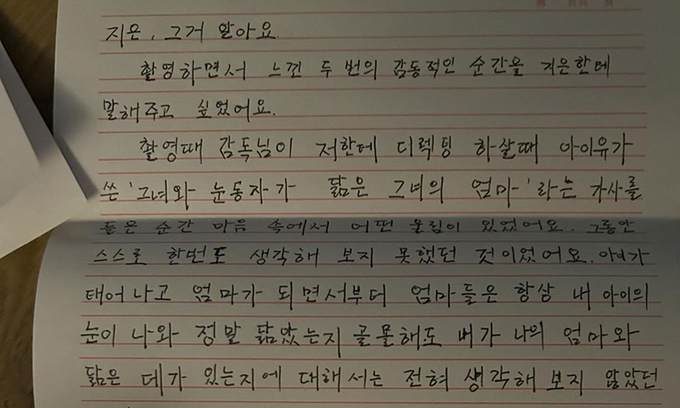 지은, 그거 알아요.
촬영하면서 느낀 두 번의 감동적인 순간을 지은한테
말해주고 싶었어요.
촬영때 감독님이 저한테 디렉팅 하살때 아이유가
쓴 '그녀와 눈동자가 닮은 그녀의 엄마'라는 가사를
들은 순간 마음 속에서 어떤 울림이 있었어요. 그동안
스스로 한번도 생각해 보지 못했던 것이었어요. 아이가
태어나고 엄마가 되면서부터 엄마들은 항상 내 아이의
눈이 나와 정말 닮았는지 골몰해도 내가 나의 엄마와
닮은 데가 있는지에 대해서는 전혀 생각해 보지 않았던